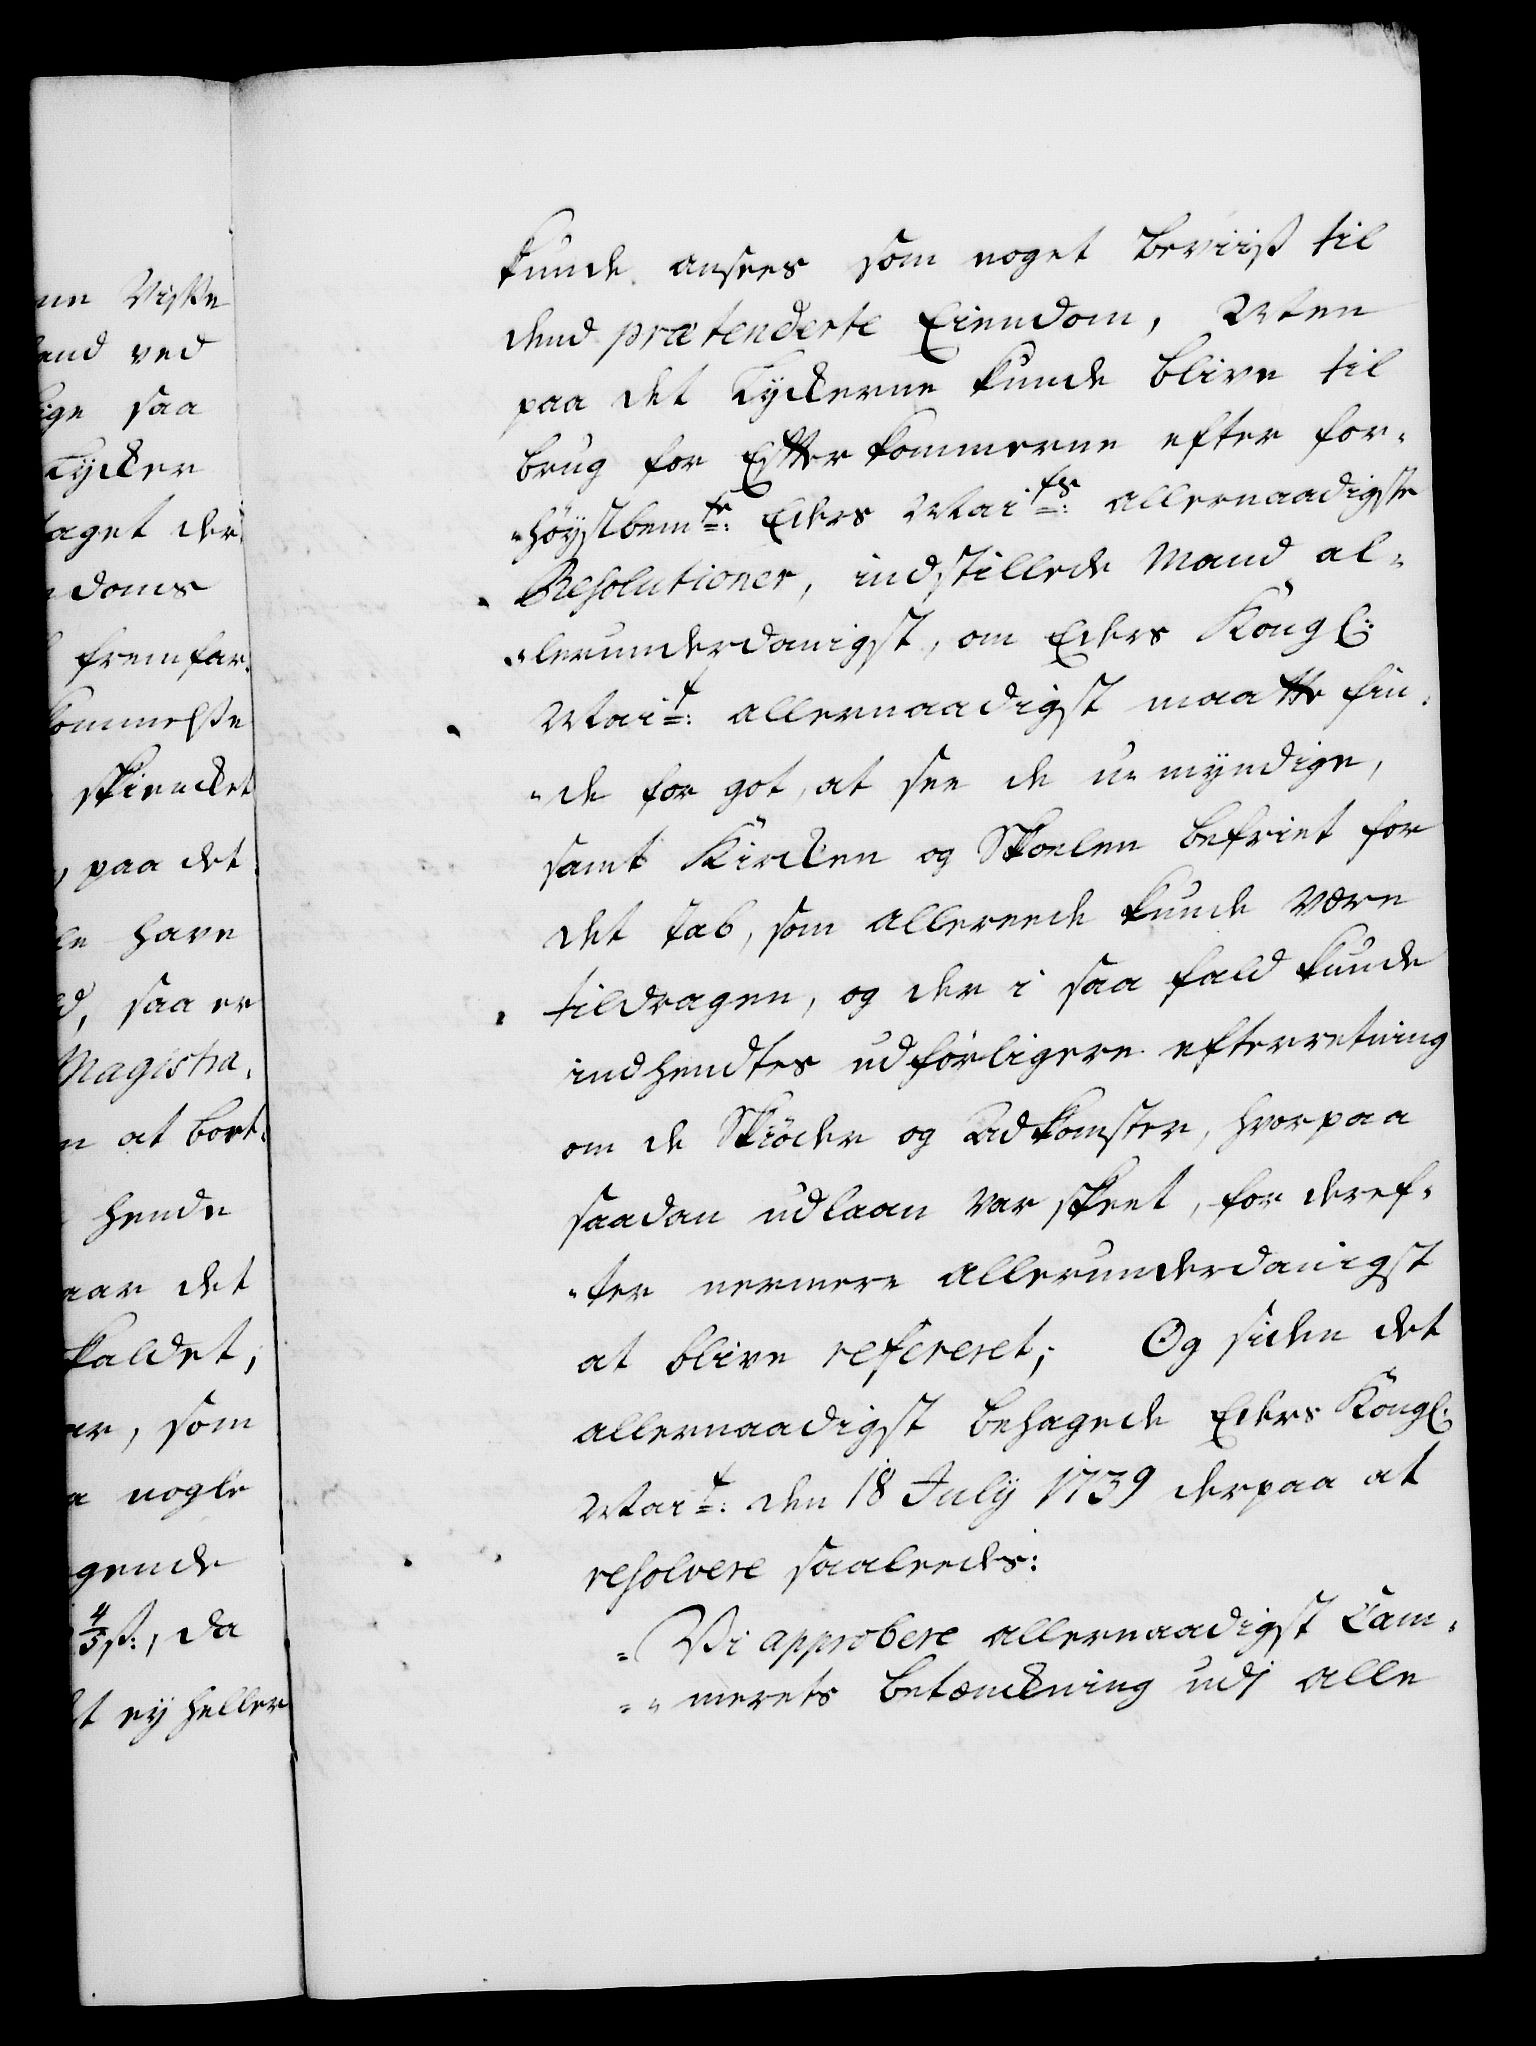 nn Viste
end ved
ige saa
Tycker
taget der
doms
fremfar-
kommelse
skiencket
, paa det
le have
d, saa er
Magistra-
n at bort-
hende
aar det
kaldet,
ar, som
a nogle
gende
4/5 ß:, da
t ey heller
kunde ansees som noget beviist til
dend prætenderte Eiendom, Men
paa det Tyckerne kunde blive til
brug for Efterkommerne efter for-
-höystbemte: Eders Maits: allernaadigste
Resolutioner, indstillede Mand al-
-lerunderdanigst, om Eders Kongl:
Mait: allernaadigst maatte fin-
-de for got, at see de u-myndige,
samt Kircken og Skoelen befriet for
det tab, som allereede kunde være
tildragen, og der i saa fald kunde
indhendtes udförligere efterretning
om de Skiöder og Adkomster, hvorpaa
saadan udlaan var skeet, for deref-
-ter nermere allerunderdanigst
at blive refereret; Og siden det
allernaadigst behagede Eders Kongl:
Mait: den 18 July 1739 derpaa at
resolvere saaleedes:
= Vi approbere allernaadigst Cam-
= - merets betænckning udj alle